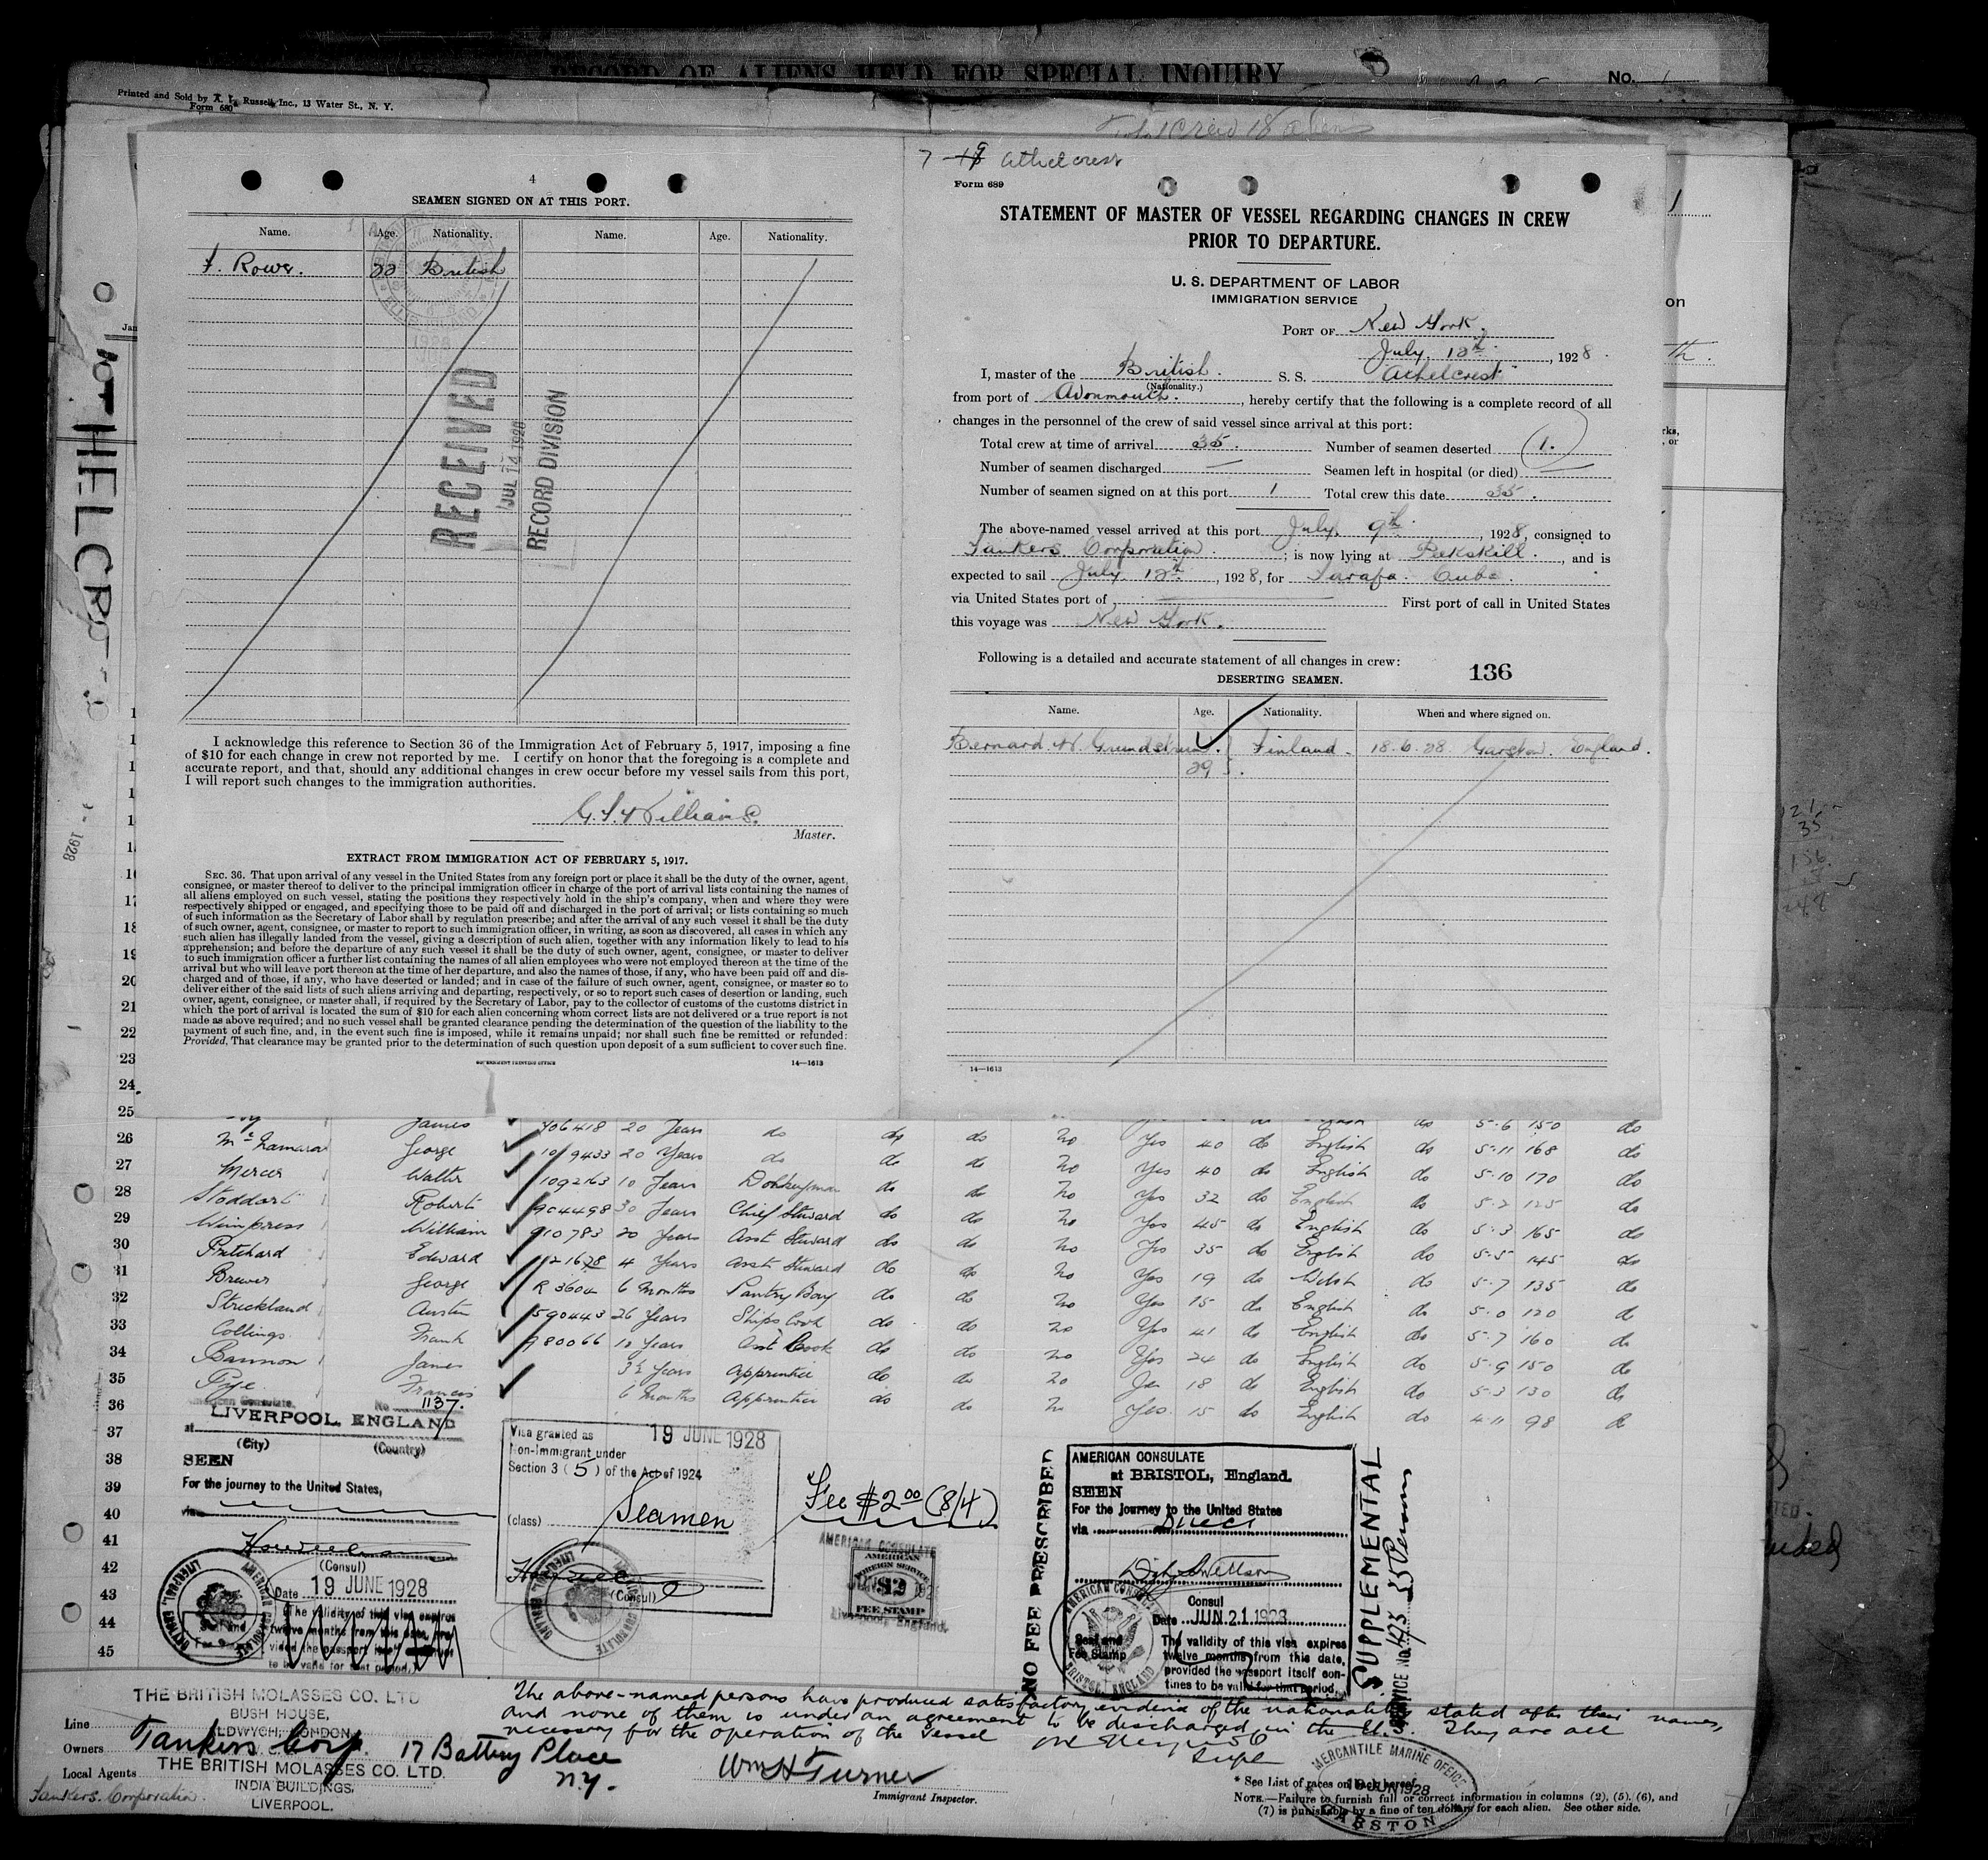 RECORD OF ALIENS HELD FOR SPECIAL INQUIRY
No. 1
Printed and Sold by A. L. Russell, Inc., 13 Water St., N. Y.
Form 680
Total Crew 18 aliens
4
SEAMEN SIGNED ON AT THIS PORT.
Name. Age. Nationality. Name. Age. Nationality.
F. Rowe. 22 British
RECEIVED
JUL 14 1928
RECORD DIVISION
I acknowledge this reference to Section 36 of the Immigration Act of February 5, 1917, imposing a fine
of $10 for each change in crew not reported by me. I certify on honor that the foregoing is a complete and
accurate report, and that, should any additional changes in crew occur before my vessel sails from this port,
I will report such changes to the immigration authorities.
Williams
Master.
EXTRACT FROM IMMIGRATION ACT OF FEBRUARY 5, 1917.
SEC. 36. That upon arrival of any vessel in the United States from any foreign port or place it shall be the duty of the owner, agent,
consignee, or master thereof to deliver to the principal immigration officer in charge of the port of arrival lists containing the names of
all aliens employed on such vessel, stating the positions they respectively hold in the ship's company, when and where they were
respectively shipped or engaged, and specifying those to be paid off and discharged in the port of arrival; or lists containing so much
of such information as the Secretary of Labor shall by regulation prescribe; and after the arrival of any such vessel it shall be the duty
of such owner, agent, consignee, or master to report to such immigration officer, in writing, as soon as discovered, all cases in which any
such alien has illegally landed from the vessel, giving a description of such alien, together with any information likely to lead to his
apprehension; and before the departure of any such vessel it shall be the duty of such owner, agent, consignee, or master to deliver
to such immigration officer a further list containing the names of all alien employees who were not employed thereon at the time of the
arrival but who will leave port thereon at the time of her departure, and also the names of those, if any, who have been paid off and dis-
charged and of those, if any, who have deserted or landed; and in case of the failure of such owner, agent, consignee, or master so to
deliver either of the said lists of such aliens arriving and departing, respectively, or so to report such cases of desertion or landing, such
owner, agent, consignee, or master shall, if required by the Secretary of Labor, pay to the collector of customs of the customs district in
which the port of arrival is located the sum of $10 for each alien concerning whom correct lists are not delivered or a true report is not
made as above required; and no such vessel shall be granted clearance pending the determination of the question of the liability to the
payment of such fine, and, in the event such fine is imposed, while it remains unpaid; nor shall such fine be remitted or refunded:
Provided, That clearance may be granted prior to the determination of such question upon deposit of a sum sufficient to cover such fine.
GOVERNMENT PRINTING OFFICE 14—1613
Athelcrest
Form 689
STATEMENT OF MASTER OF VESSEL REGARDING CHANGES IN CREW
PRIOR TO DEPARTURE.
U. S. DEPARTMENT OF LABOR
IMMIGRATION SERVICE
PORT OF New York.
July 12th, 1928
I, master of the British. S. S. "Athelcrest"
(Nationality.)
from port of Avonmouth., hereby certify that the following is a complete record of all
changes in the personnel of the crew of said vessel since arrival at this port:
Total crew at time of arrival 35. Number of seamen deserted 1.
Number of seamen discharged — Seamen left in hospital (or died) —
Number of seamen signed on at this port 1 Total crew this date 35.
The above-named vessel arrived at this port July 9th, 1928, consigned to
Tankers Corporation.; is now lying at Peekskill., and is
expected to sail July 12th, 1928, for Tarafa. Cuba.
via United States port of — First port of call in United States
this voyage was New York.
Following is a detailed and accurate statement of all changes in crew: 136
DESERTING SEAMEN.
Name. Age. Nationality. When and where signed on.
Bernard. N. Grundstrum. Finland. 18.6.28 Garston. England.
29
14—1613
25 James 20 Years do do do no Yes 40 do English do 5-6 150 do
26 McNamara George 20 Years do do do no Yes 40 do English do 5-11 168 do
27 Mercer Walter 109263 10 Years Donkeyman do do no Yes 32 do English do 5-10 170 do
28 Stoddart Robert 904498 30 Years Chief Steward do do no Yes 45 do English do 5-2 125 do
29 Wimpress William 910783 20 Years Asst Steward do do no Yes 35 do English do 5-3 165 do
30 Pritchard Edward 4 Years Asst Steward do do no Yes 19 do Welsh do 5-5 145 do
31 Brewer George 6 Months Pantry Boy do do no Yes 15 do English do 5-7 135 do
32 Strickland Austin 590443 26 Years Ships Cook do do no Yes 41 do English do 5-0 120 do
33 Collings Frank 980066 10 Years Asst Cook do do no Yes 24 do English do 5-7 160 do
34 Bannon James 3½ Years Apprentice do do no Yes 18 do English do 5-9 150 do
35 Pye Francis 6 Months Apprentice do do no Yes 15 do English do 5-3 130 do
36 4-11 98
37
38
39
40
41
42
43
44
45
American Consulate No 1137.
at LIVERPOOL, ENGLAND
(City) (Country)
SEEN
For the journey to the United States,
via
(Consul)
Date 19 JUNE 1928
The validity of this visa expires
twelve months from this date, pro-
vided the passport
to be valid for that period.
Visa granted as 19 JUNE 1928
Non-Immigrant under
Section 3 (5) of the Act of 1924
(class) Seamen
(Consul)
Fee $2.00 (8/4)
AMERICAN CONSULATE
AMERICAN
FOREIGN SERVICE
$2
FEE STAMP
Liverpool, England.
NO FEE PRESCRIBED
AMERICAN CONSULATE
at BRISTOL, England.
SEEN
For the journey to the United States
via Direct
Consul
Date JUN 21 1928
Seal and
Fee Stamp
The validity of this visa expires
twelve months from this date,
provided the passport itself con-
tinues to be valid for that period.
SUPPLEMENTAL
SERVICE NO. 423 35 Persons
The above-named persons have produced satisfactory evidence of the nationality stated after their names,
and none of them is under an agreement to be discharged in the U.S. They are all
necessary for the operation of the vessel
Supt
THE BRITISH MOLASSES CO. LTD
BUSH HOUSE,
ALDWYCH, LONDON
Line
Owners Tankers Corp. 17 Battery Place
N.Y.
THE BRITISH MOLASSES CO. LTD.
Local Agents
INDIA BUILDINGS,
LIVERPOOL.
Tankers. Corporation.
Wm H Turner
Immigrant Inspector.
MERCANTILE MARINE OFFICE
19 JUN 1928
GARSTON
* See List of races on back hereof.
NOTE.—Failure to furnish full or correct information in columns (2), (5), (6), and
(7) is punishable by a fine of ten dollars for each alien. See other side.